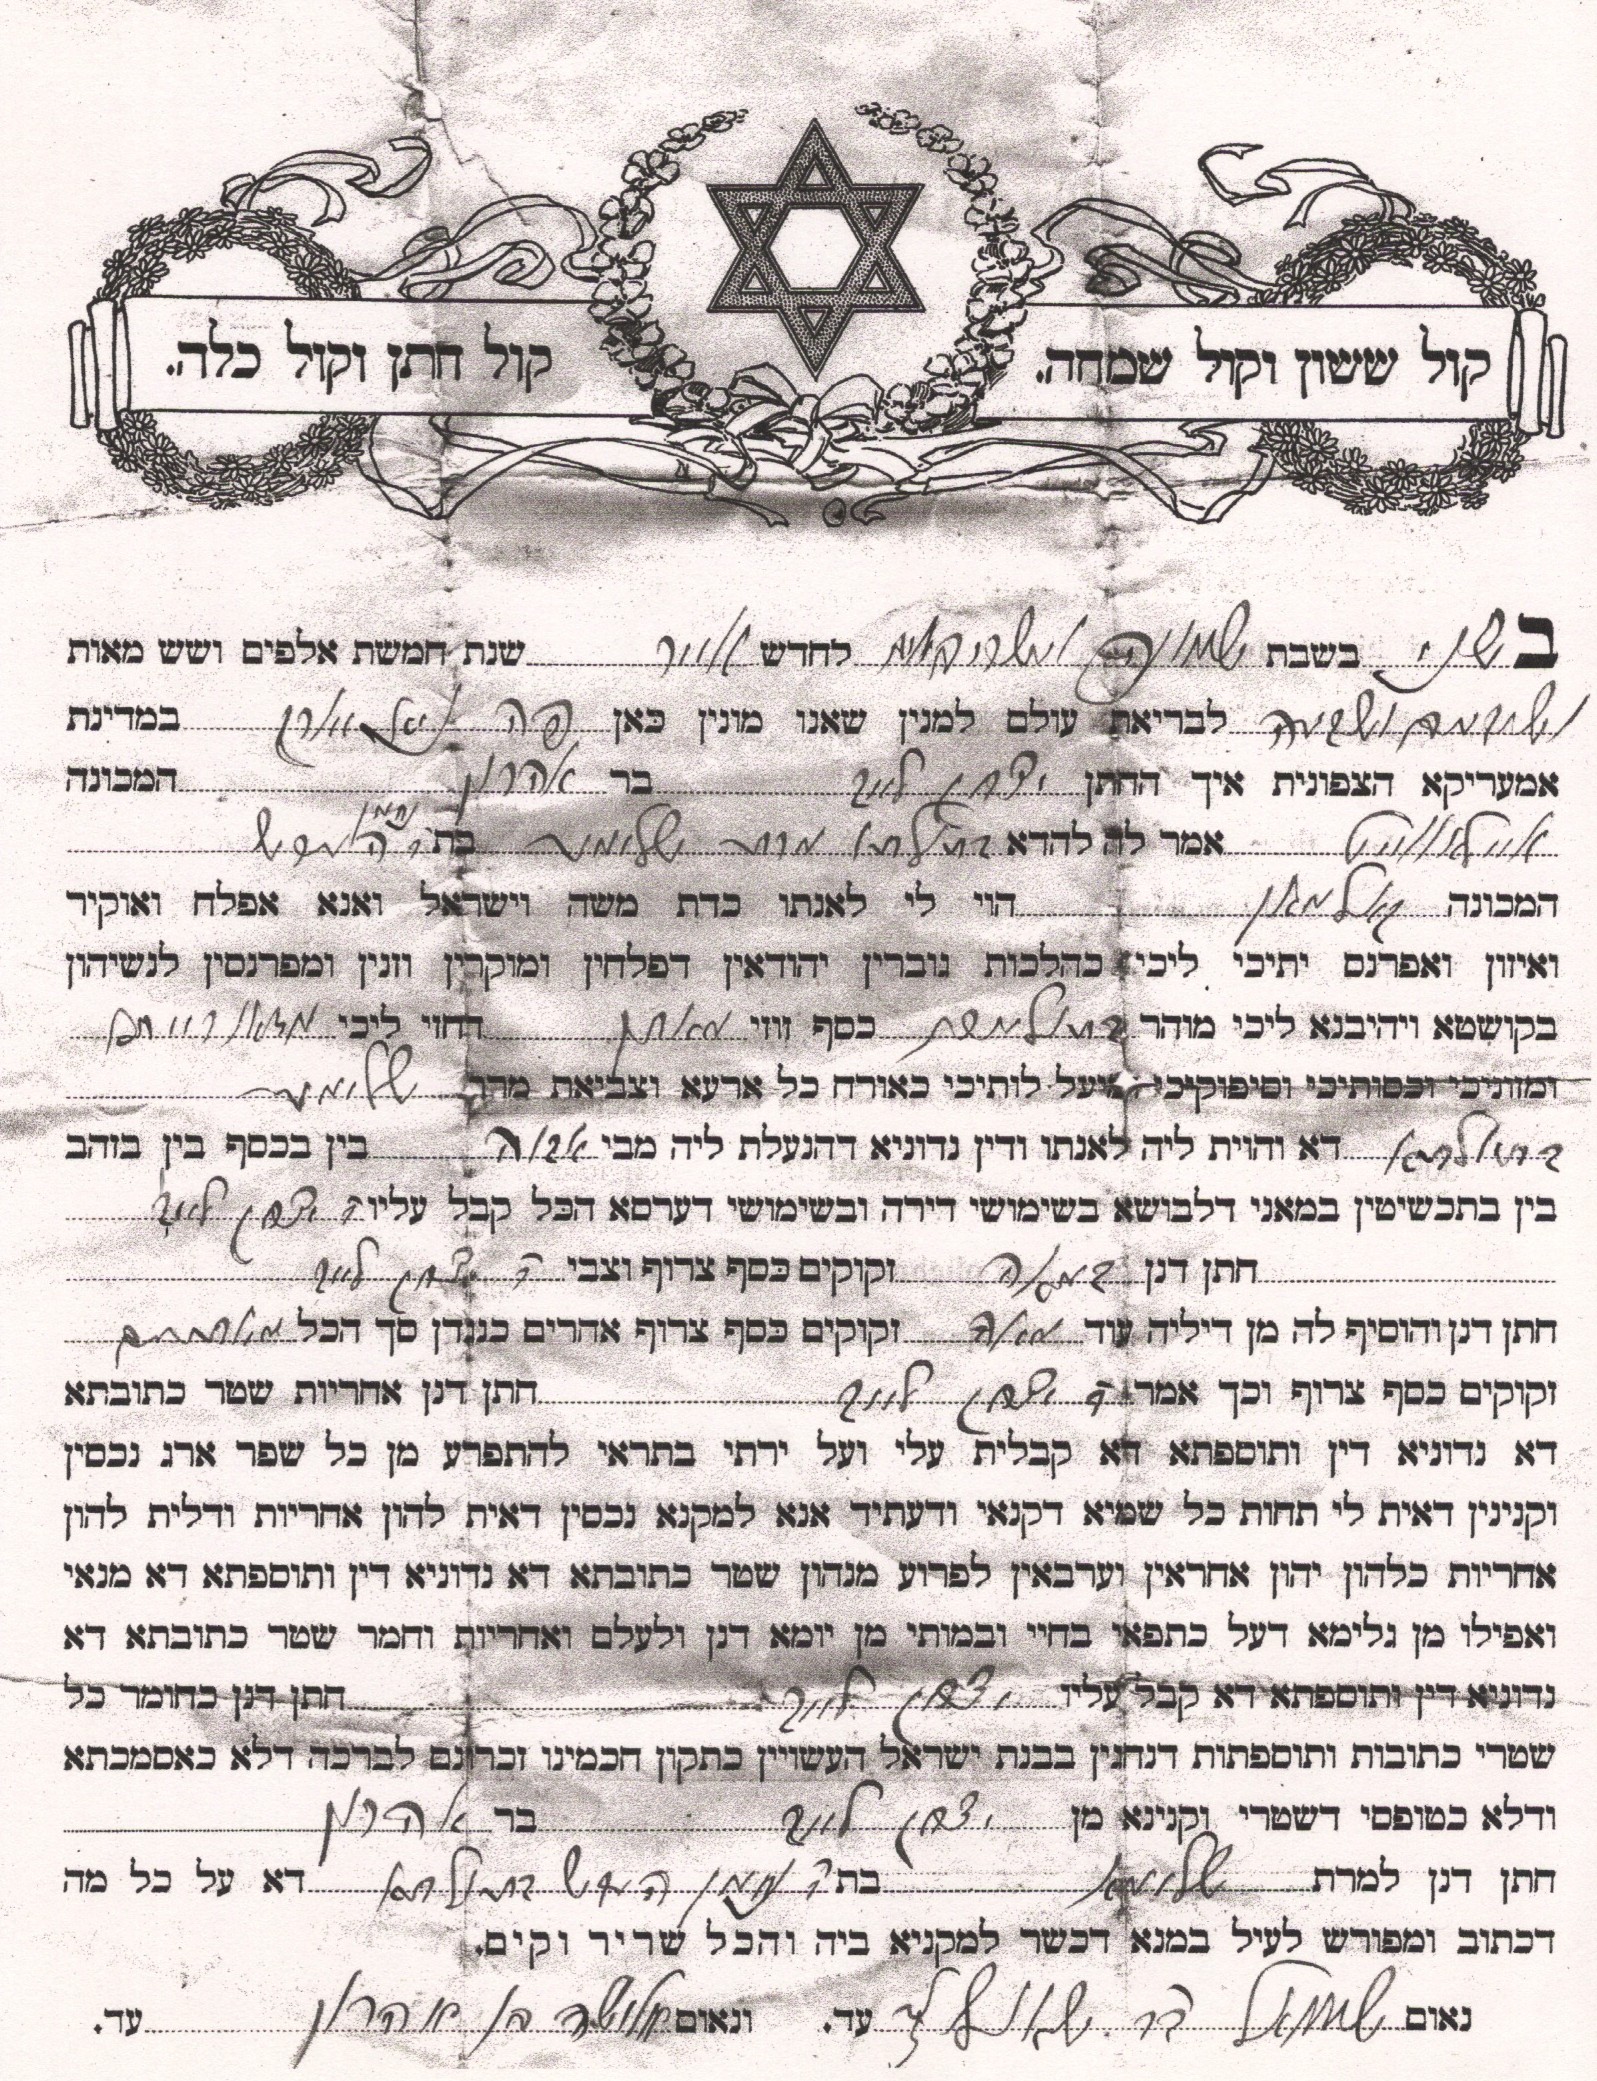 קול ששון וקול שמחה. קול חתן וקול כלה.
בשני בשבת שמונה ועשרים לחדש אייר שנת חמשת אלפים ושש מאות
לבריאת עולם למנין שאנו מונין כאן פה במדינת
אמעריקא הצפונית איך החתן יצחק לייב בר אהרון המכונה
אמר לה להדא בתולתא מרת בת ר נחמן
המכונה הוי לי לאנתו כדת משה וישראל ואנא אפלח ואוקיר
ואיזון ואפרנס יתיכי ליכי כהלכות גוברין יהודאין דפלחין ומוקרין וזנין ומפרנסין לנשיהון
בקושטא ויהיבנא ליכי מוהר כסף זוזי מאתן דחזי ליכי
ומזוניכי וכסותיכי וסיפוקיכי ומיעל לותיכי כאורח כל ארעא וצביאת מרת
בתולתא דא והוית ליה לאנתו ודין נדוניא דהנעלת ליה מבי אבוה בין בכסף בין בזהב
בין בתכשיטין במאני דלבושא בשימושי דירה ובשימושי דערסא הכל קבל עליו ר יצחק לייב
חתן דנן במאה זקוקים כסף צרוף וצבי ר יצחק לייב
חתן דנן והוסיף לה מן דיליה עוד מאה זקוקים כסף צרוף אחרים כנגדן סך הכל מאתים
זקוקים כסף צרוף וכך אמר ר יצחק לייב חתן דנן אחריות שטר כתובתא
דא נדוניא דין ותוספתא דא קבלית עלי ועל ירתי בתראי להתפרע מן כל שפר ארג נכסין
וקנינין דאית לי תחות כל שמיא דקנאי ודעתיד אנא למקנא נכסין דאית להון אחריות ודלית להון
אחריות כלהון יהון אחראין וערבאין לפרוע מנהון שטר כתובתא דא נדוניא דין ותוספתא דא מנאי
ואפילו מן גלימא דעל כתפאי בחיי ובמותי מן יומא דנן ולעלם ואחריות וחמר שטר כתובתא דא
נדוניא דין ותוספתא דא קבל עליו יצחק לייב חתן דנן כחומר כל
שטרי כתובות ותוספתות דנהגין בבנת ישראל העשויין כתקון חכמינו זכרונם לברכה דלא כאסמכתא
ודלא כטופסי דשטרי וקנינא מן יצחק לייב בר אהרון
חתן דנן למרת בת ר נחמן בתולתא דא על כל מה
דכתוב ומפורש לעיל במנא דכשר למקניא ביה והכל שריר וקים.
נאום שמואל עד. ונאום בן אהרון עד.